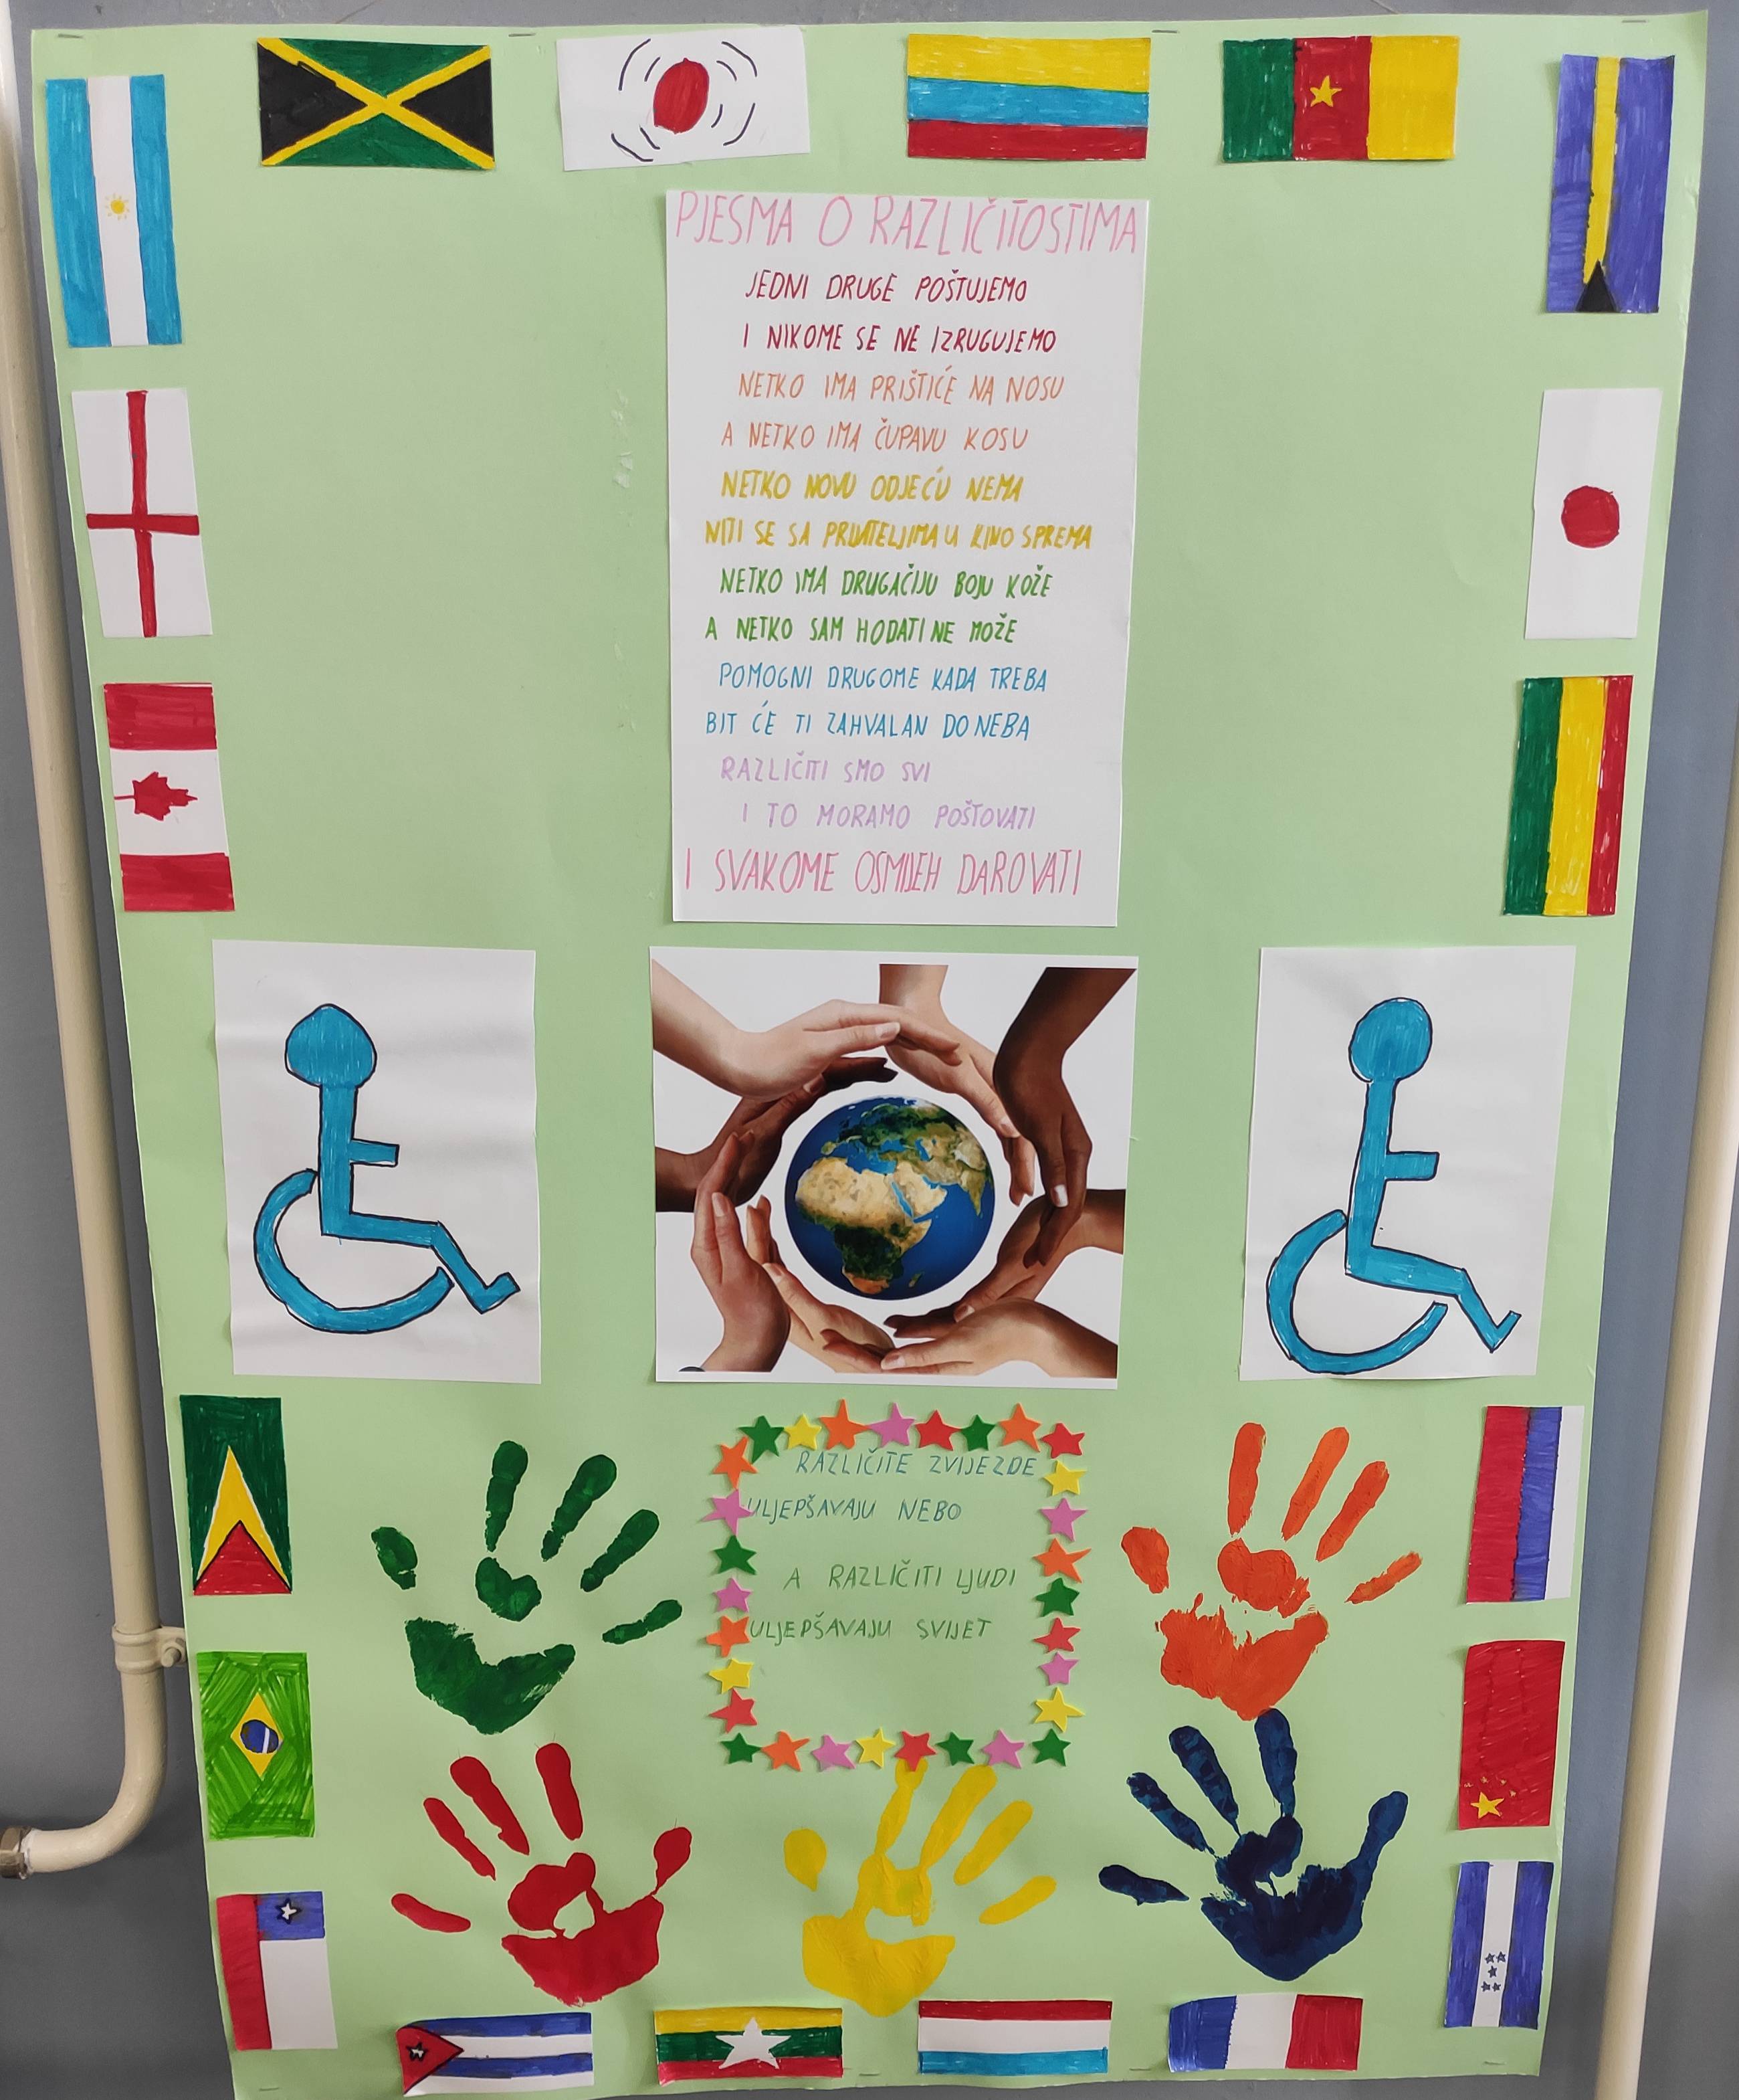 PJESMA O RAZLIČITOSTIMA
JEDNI DRUGE POŠTUJEMO
I NIKOME SE NE IZRUGUJEMO
NETKO IMA PRIŠTIĆE NA NOSU
A NETKO IMA ČUPAVU KOSU
NETKO NOVU ODJEĆU NEMA
NITI SE SA PRIJATELJIMA U KINO SPREMA
NETKO IMA DRUGAČIJU BOJU KOŽE
A NETKO SAM HODATI NE MOŽE
POMOGNI DRUGOME KADA TREBA
BIT ĆE TI ZAHVALAN DO NEBA
RAZLIČITI SMO SVI
I TO MORAMO POŠTOVATI
I SVAKOME OSMIJEH DAROVATI
RAZLIČITE ZVIJEZDE
ULJEPŠAVAJU NEBO
A RAZLIČITI LJUDI
ULJEPŠAVAJU SVIJET